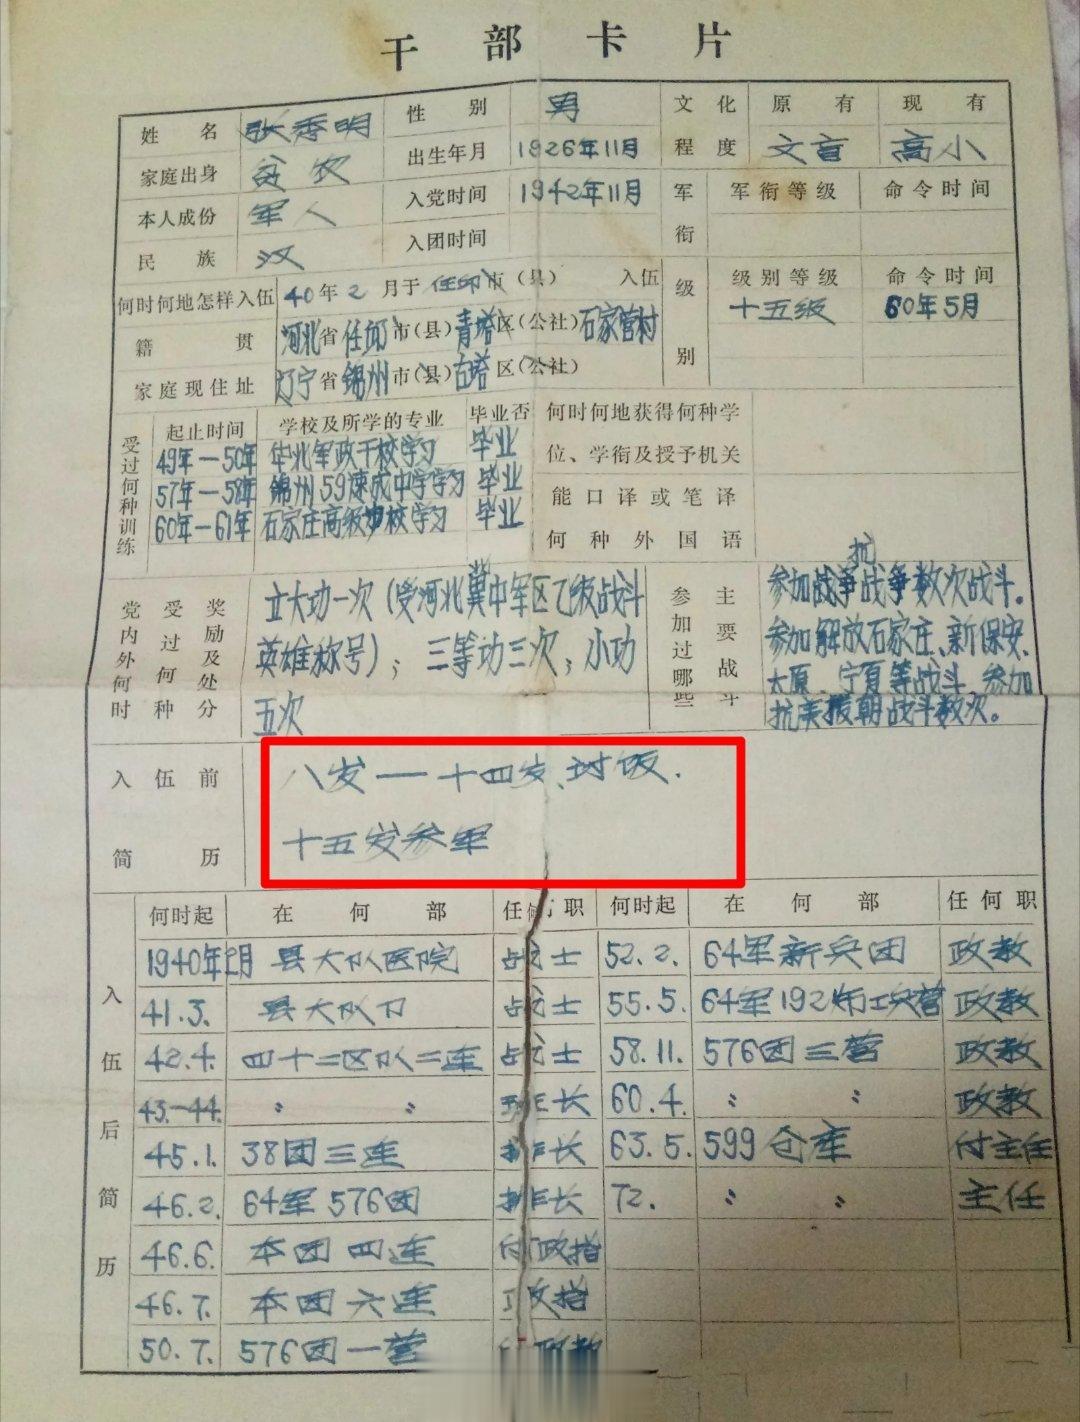 干部卡片
姓名 张秀明 性别 男 文化程度 原有 现有
家庭出身 贫农 出生年月 1926年11月 文盲 高小
本人成份 军人 入党时间 1942年11月 军衔 军衔等级 命令时间
民族 汉 入团时间
何时何地怎样入伍 40年2月于任邱市(县) 入伍 级别 级别等级 命令时间
十五级 60年5月
籍贯 河北省任邱市(县)青塔区(公社)石家营村
家庭现住址 辽宁省锦州市(县)古塔区(公社)
受过何种训练 起止时间 学校及所学的专业 毕业否 何时何地获得何种学位、学衔及授予机关
49年—50年 华北军政干校学习 毕业
57年—58年 锦州59速成中学学习 毕业 能口译或笔译何种外国语
60年—61年 石家庄高级步校学习 毕业
党内外何时受过何种奖励及处分 立大功一次(受河北冀中军区乙级战斗
英雄称号);三等功三次;小功
五次
参加过哪些主要战斗 抗
参加战争战争数次战斗。
参加解放石家庄、新保安、
太原、宁夏等战斗.参加
抗美援朝战斗数次。
入伍前简历 八岁—十四岁、讨饭.
十五岁参军
入伍后简历
何时起 在何部 任何职 何时起 在何部 任何职
1940年2月 县大队医院 战士 52.2. 64军新兵团 政教
41.3. 县大队 战士 55.5. 64军192师工兵营 政教
42.4. 四十二区队二连 战士 58.11. 576团三营 政教
43.—44. 〃 〃 班长 60.4. 〃 〃 政教
45.1. 38团三连 排长 63.5. 599仓库 付主任
46.2. 64军576团 排长 72. 〃 〃 主任
46.6. 本团四连 付政指
46.7. 本团六连 政指
50.7. 576团一营 政教